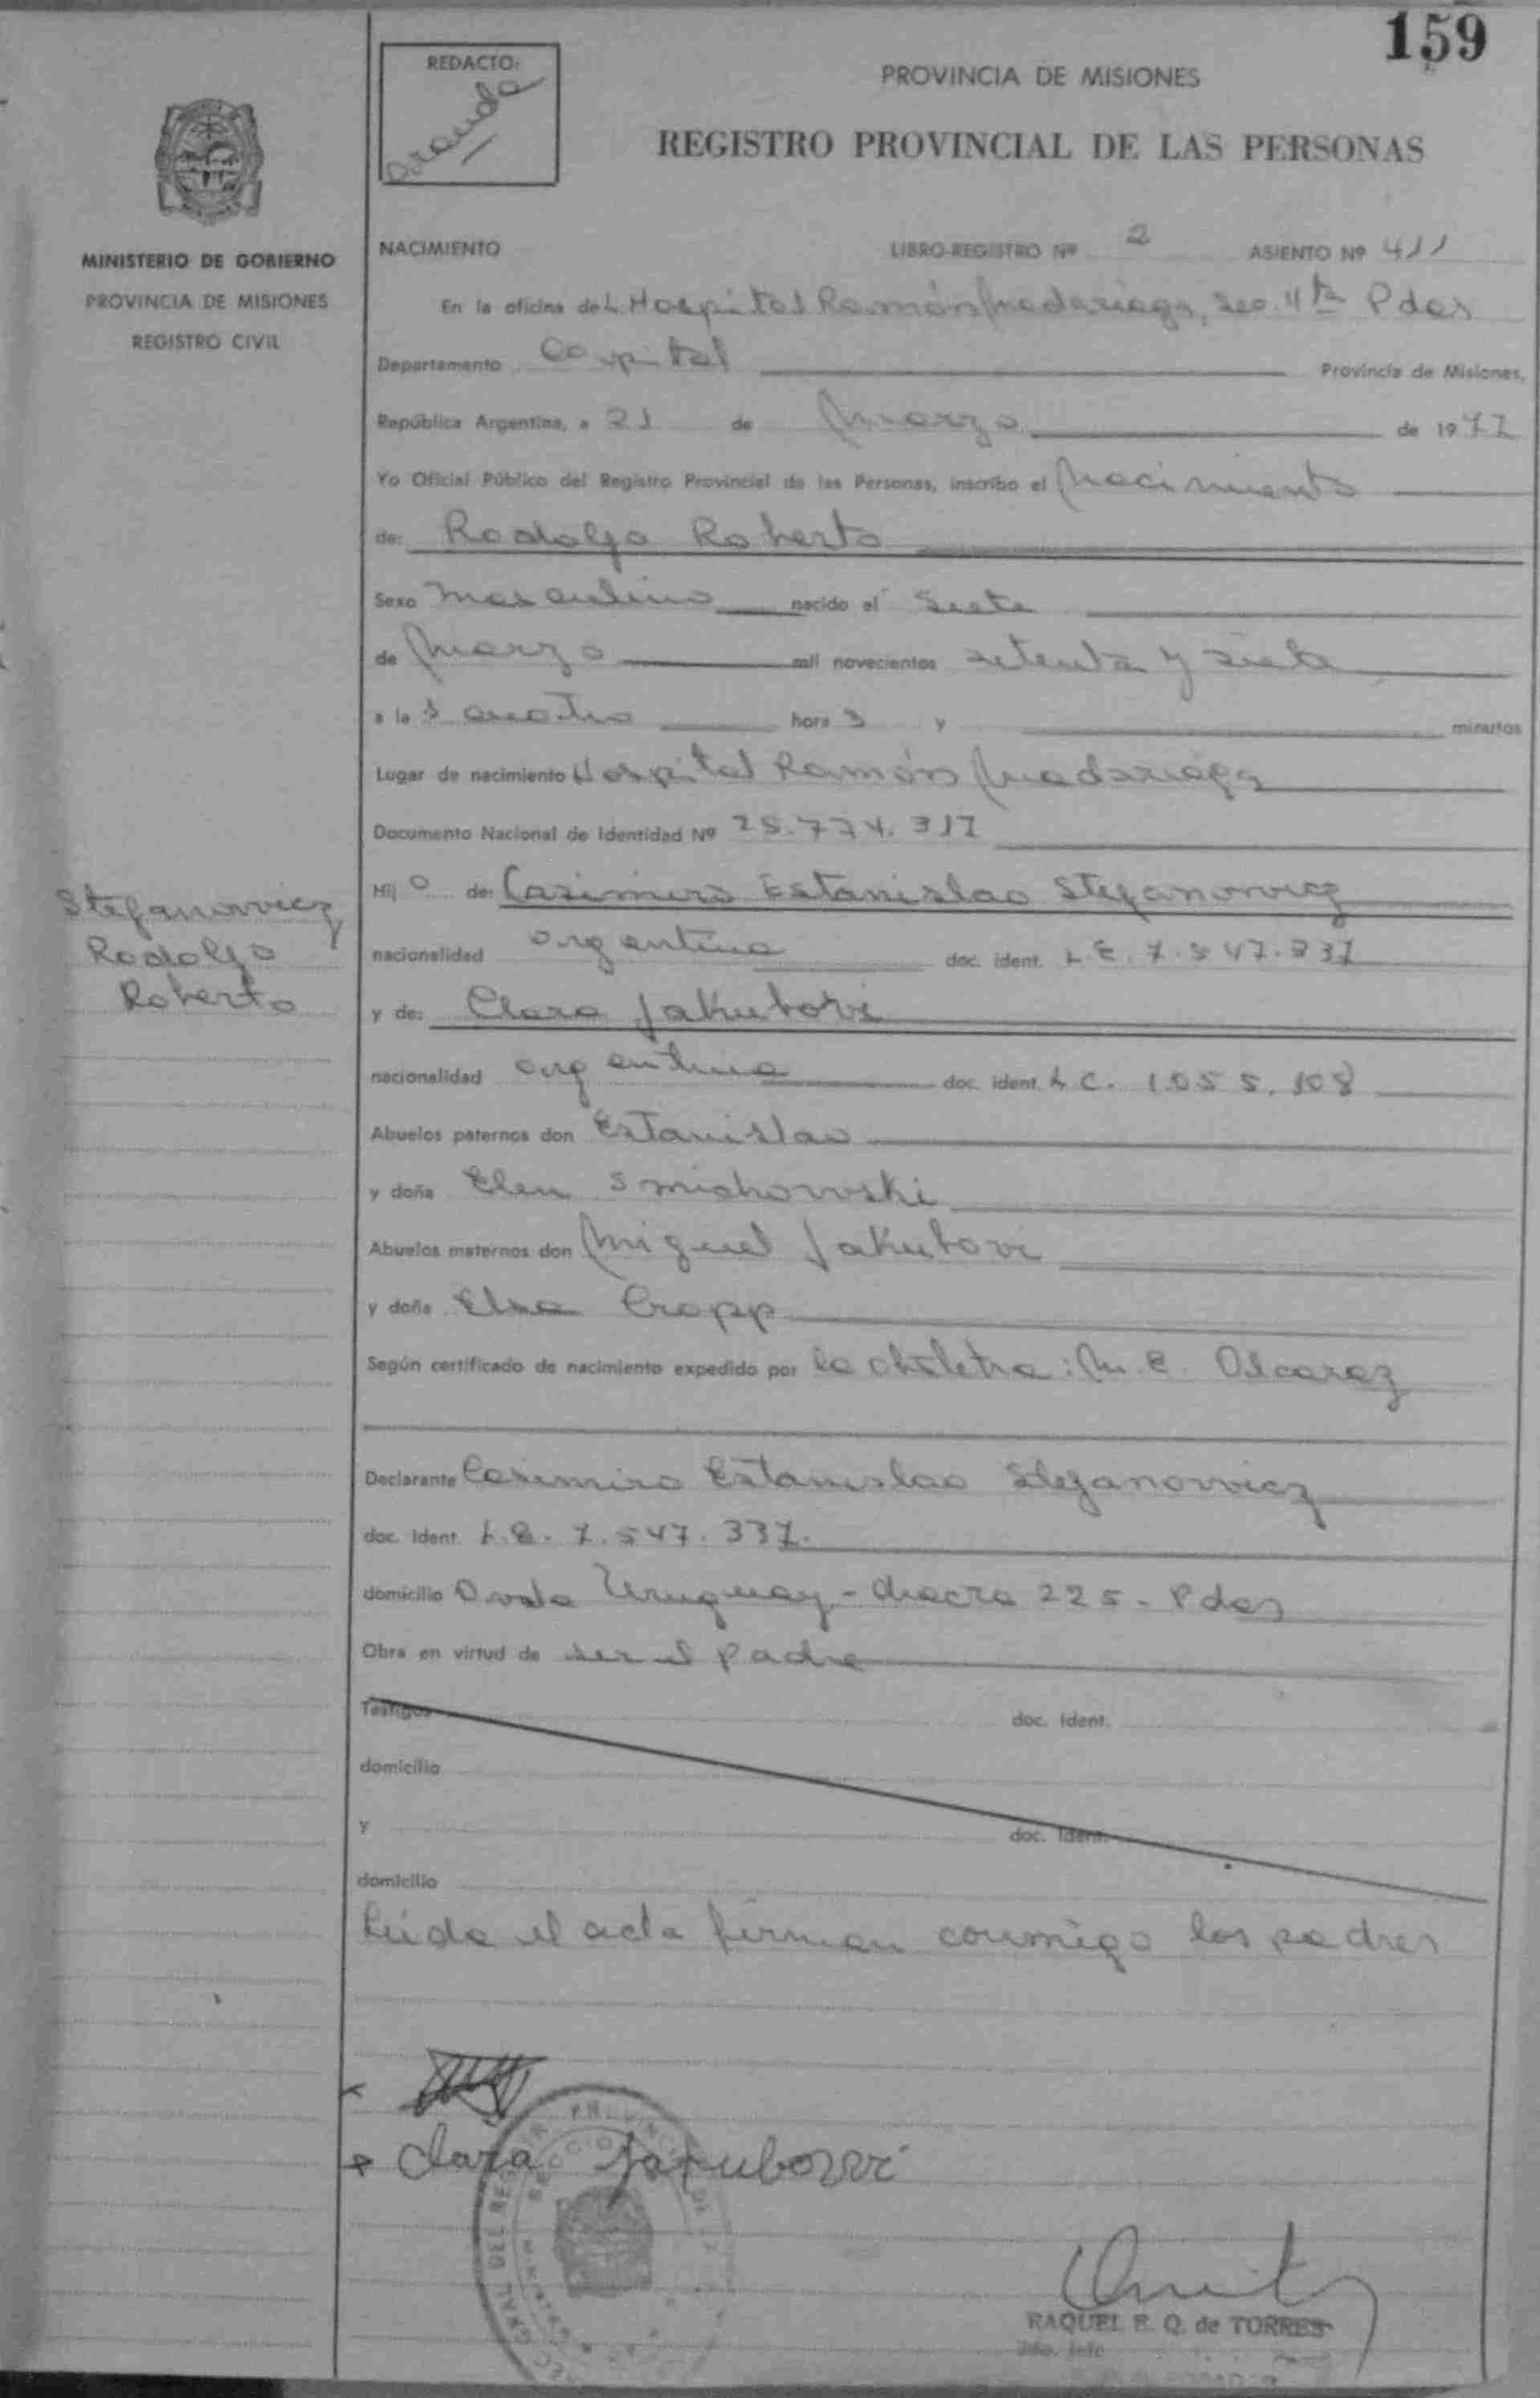 159
REDACTO:
PROVINCIA DE MISIONES
REGISTRO PROVINCIAL DE LAS PERSONAS
MINISTERIO DE GOBIERNO
PROVINCIA DE MISIONES
REGISTRO CIVIL
NACIMIENTO LIBRO-REGISTRO Nº 2 ASIENTO Nº 411
En la oficina del Hospital Ramón Madariaga, Sec. 4ta Pdas
Departamento Capital Provincia de Misiones,
República Argentina, a 21 de Marzo de 1977
Yo Oficial Público del Registro Provincial de las Personas, inscribo el Nacimiento
de: Rodolfo Roberto
Sexo Masculino nacido el siete
de Marzo mil novecientos setenta y siete
a la s cuatro hora s y minutos
Lugar de nacimiento Hospital Ramón Madariaga
Documento Nacional de Identidad Nº 25.774.317
Hij o de: Casimiro Estanislao Stefanowicz
Stefanowicz
Rodolfo
Roberto
nacionalidad argentina doc. ident. L.E. 7.547.337
y de: Clara Jakubowi
nacionalidad argentina doc. ident. L.C. 1.055.108
Abuelos paternos don Estanislao
y doña Elen Smichowski
Abuelos maternos don Miguel Jakubowi
y doña Elsa Cropp
Según certificado de nacimiento expedido por la obstetra: M. E. Alcaraz
Declarante Casimiro Estanislao Stefanowicz
doc. Ident. L.E. 7.547.337.
domicilio Avda Uruguay - chacra 225 - Pdas
Obra en virtud de ser el padre
Testigos doc. Ident.
domicilio
y doc. Ident.
domicilio
Leída el acta firman conmigo los padres
Clara Jakubowi
RAQUEL E. Q. de TORRES
2do. Jefe